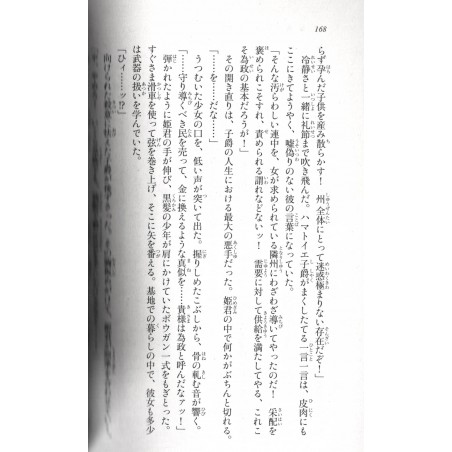 168
らず孕んだ子供を産み散らかす！　州全体にとって迷惑極まりない存在だぞ！」
冷静さと一緒に礼節まで吹き飛んだ。ハマトイエ子爵がまくしたてる一言一言は、皮肉にも
ここにきてようやく、嘘偽りのない彼の言葉になっていた。
「そんな汚らわしい連中を、女が求められている隣州にわざわざ導いてやったのだ！　采配を
褒められこそすれ、責められる謂れなどないッ！　需要に対して供給を満たしてやる、これこ
そ為政の基本だろうが！」
その開き直りは、子爵の人生における最大の悪手だった。姫君の中で何かがぶちんと切れる。
「……を……だな……」
うつむいた少女の口を、低い声が突いて出た。握りしめたこぶしから、骨の軋む音が響く。
「……守り導くべき民を売って、金に換えるような真似を……貴様は為政と呼んだなァッ！」
弾かれたように姫君の手が伸び、黒髪の少年が肩にかけていたボウガン一式をもぎとった。
すぐさま滑車を使って弦を巻き上げ、そこに矢を番える。基地での暮らしの中で、彼女も多少
は武器の扱いを学んでいた。
「ひィ……ッ!?」
向けられた